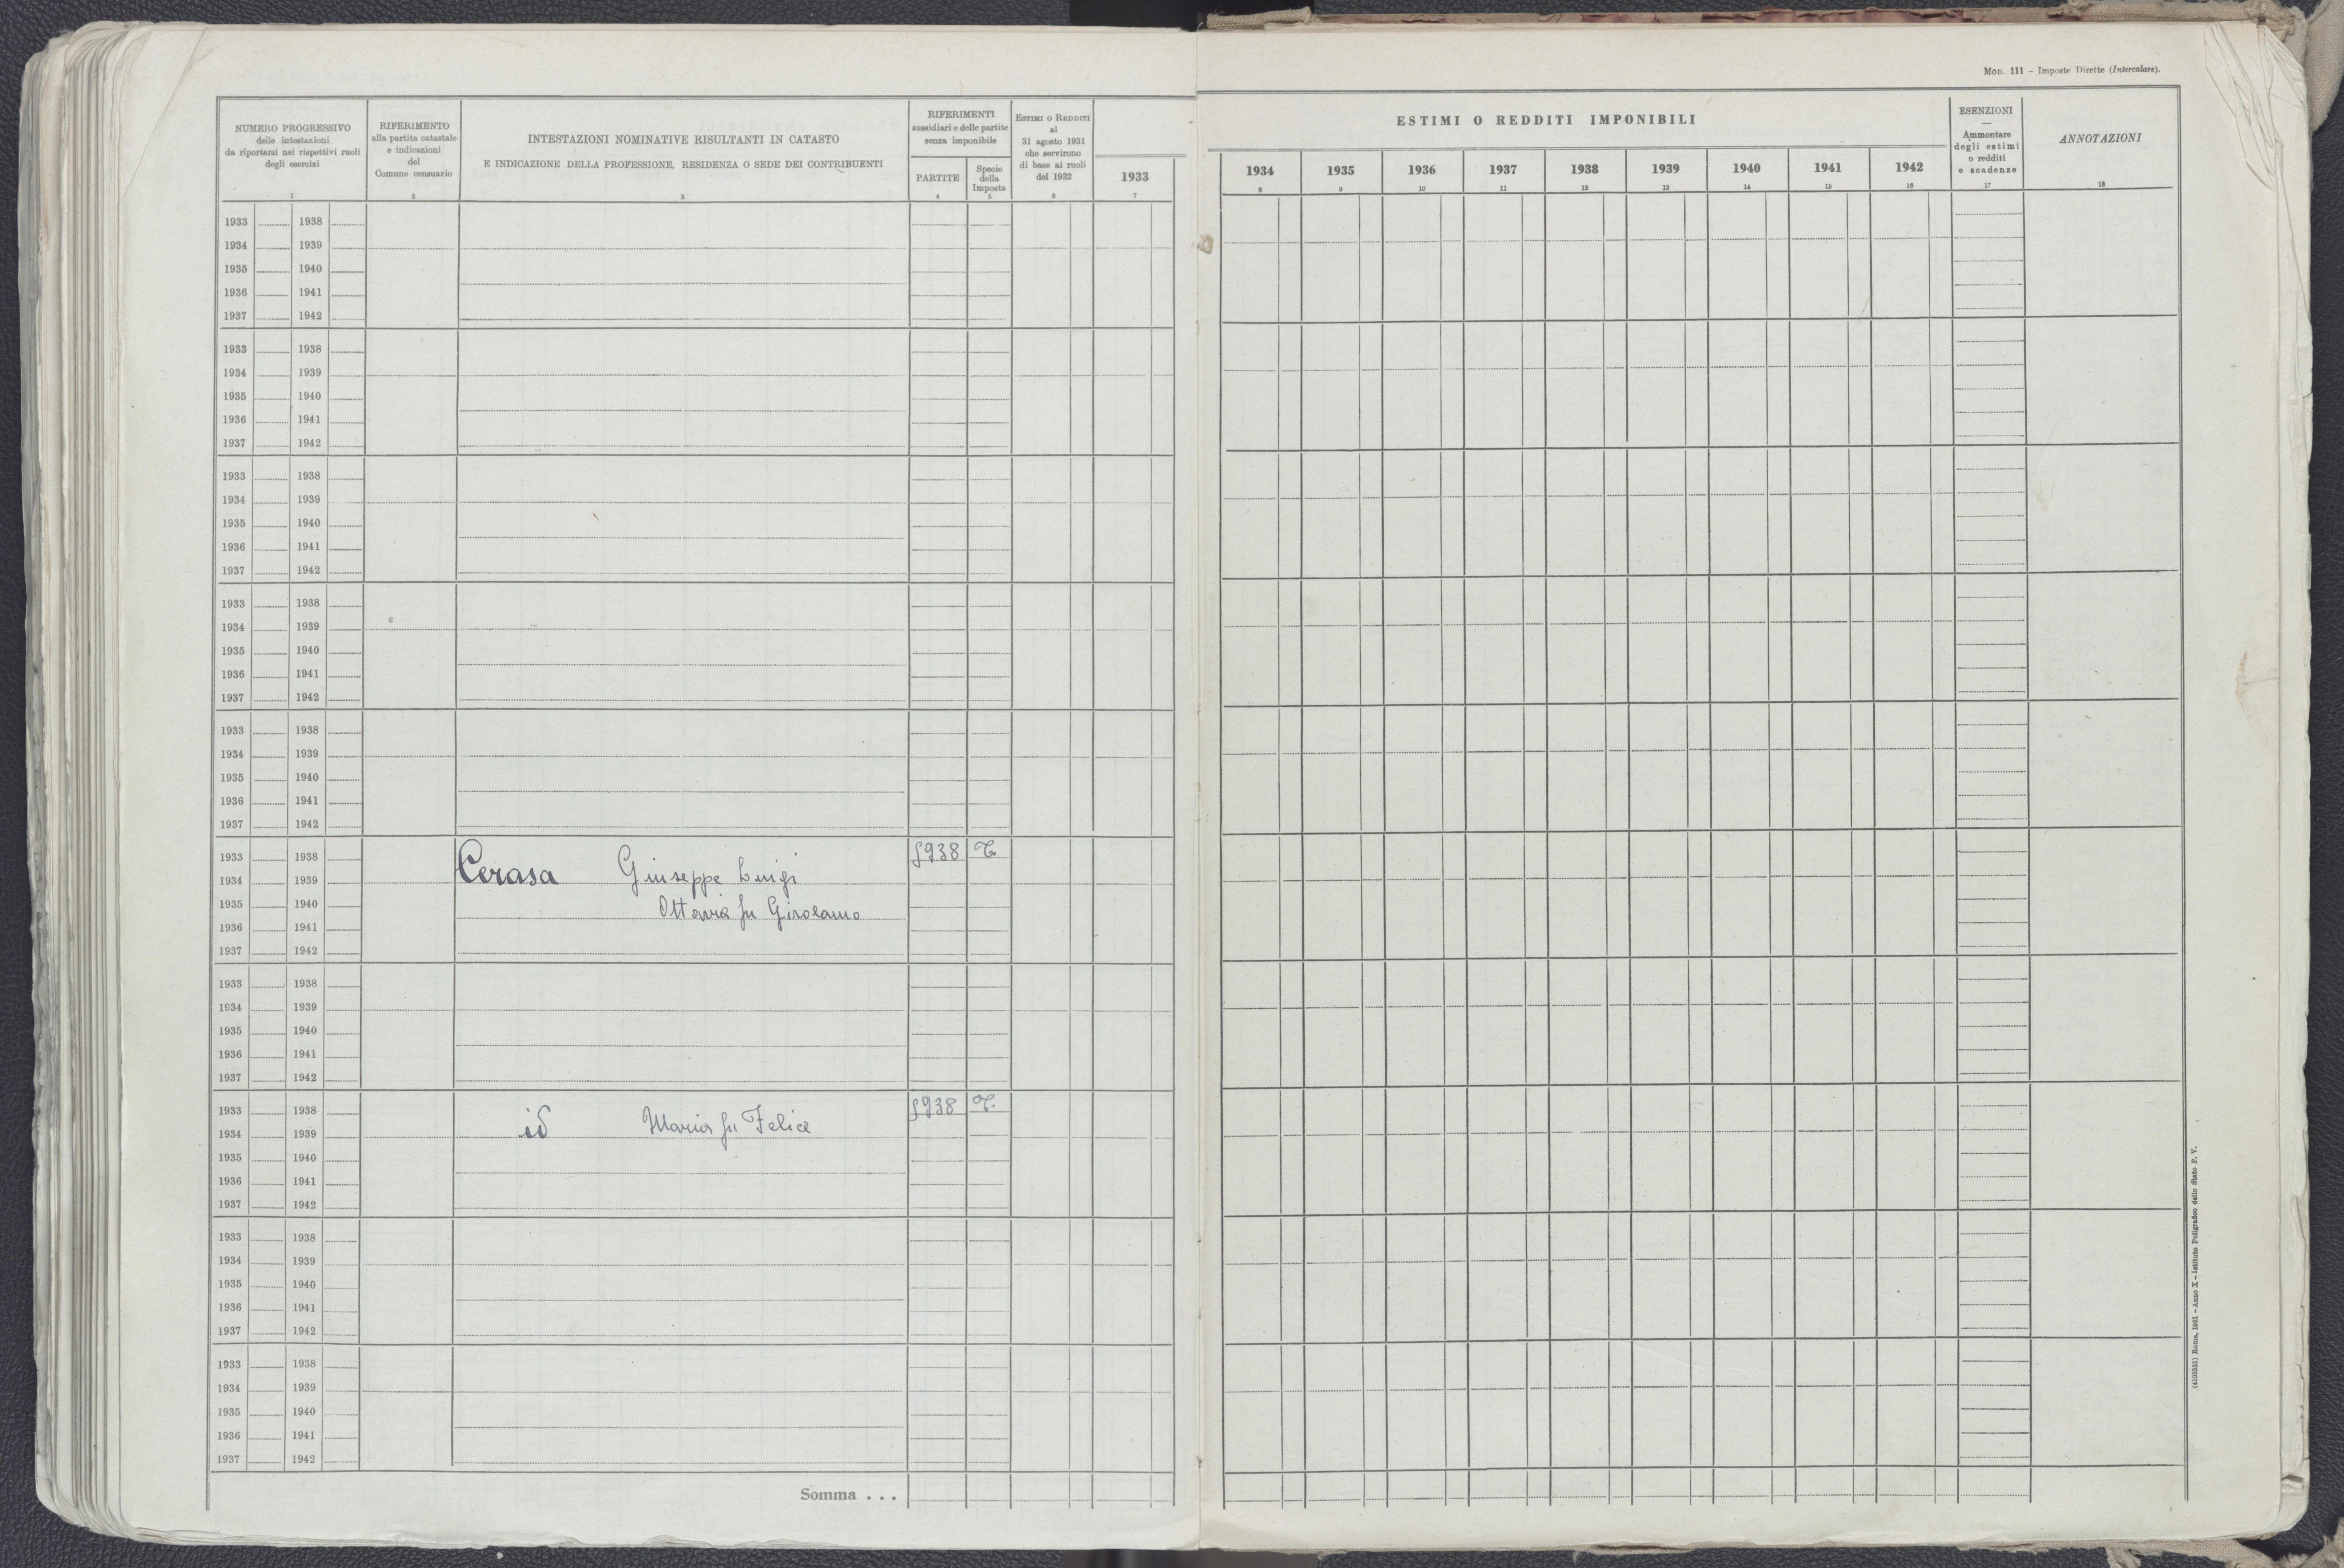 Mod. 111 – Imposte Dirette (Intercalare).
NUMERO PROGRESSIVO
delle intestazioni
da riportarsi nei rispettivi ruoli
degli esercizi
1
RIFERIMENTO
alla partita catastale
e indicazioni
del
Comune censuario
2
INTESTAZIONI NOMINATIVE RISULTANTI IN CATASTO
E INDICAZIONE DELLA PROFESSIONE, RESIDENZA O SEDE DEI CONTRIBUENTI
3
RIFERIMENTI
sussidiari e delle partite
senza imponibile
PARTITE
4
Specie
della
Imposta
5
Estimi o Redditi
al
31 agosto 1931
che servirono
di base ai ruoli
del 1932
6
1933
7
ESTIMI O REDDITI IMPONIBILI
1934 1935 1936 1937 1938 1939 1940 1941 1942
8 9 10 11 12 13 14 15 16
ESENZIONI
—
Ammontare
degli estimi
o redditi
e scadenze
17
ANNOTAZIONI
18
1933 1938
1934 1939
1935 1940
1936 1941
1937 1942
1933 1938
1934 1939
1935 1940
1936 1941
1937 1942
1933 1938
1934 1939
1935 1940
1936 1941
1937 1942
1933 1938
1934 1939
1935 1940
1936 1941
1937 1942
1933 1938
1934 1939
1935 1940
1936 1941
1937 1942
1933 1938 T.
1934 1939 Cerasa Giuseppe Luigi
1935 1940 Ottavia fu Girolamo
1936 1941
1937 1942
1933 1938
1934 1939
1935 1940
1936 1941
1937 1942
1933 1938 T.
1934 1939 id Maria fu Felice
1935 1940
1936 1941
1937 1942
1933 1938
1934 1939
1935 1940
1936 1941
1937 1942
1933 1938
1934 1939
1935 1940
1936 1941
1937 1942
Somma . . .
Roma, 1931 – Anno X – Istituto Poligrafico dello Stato P. V.